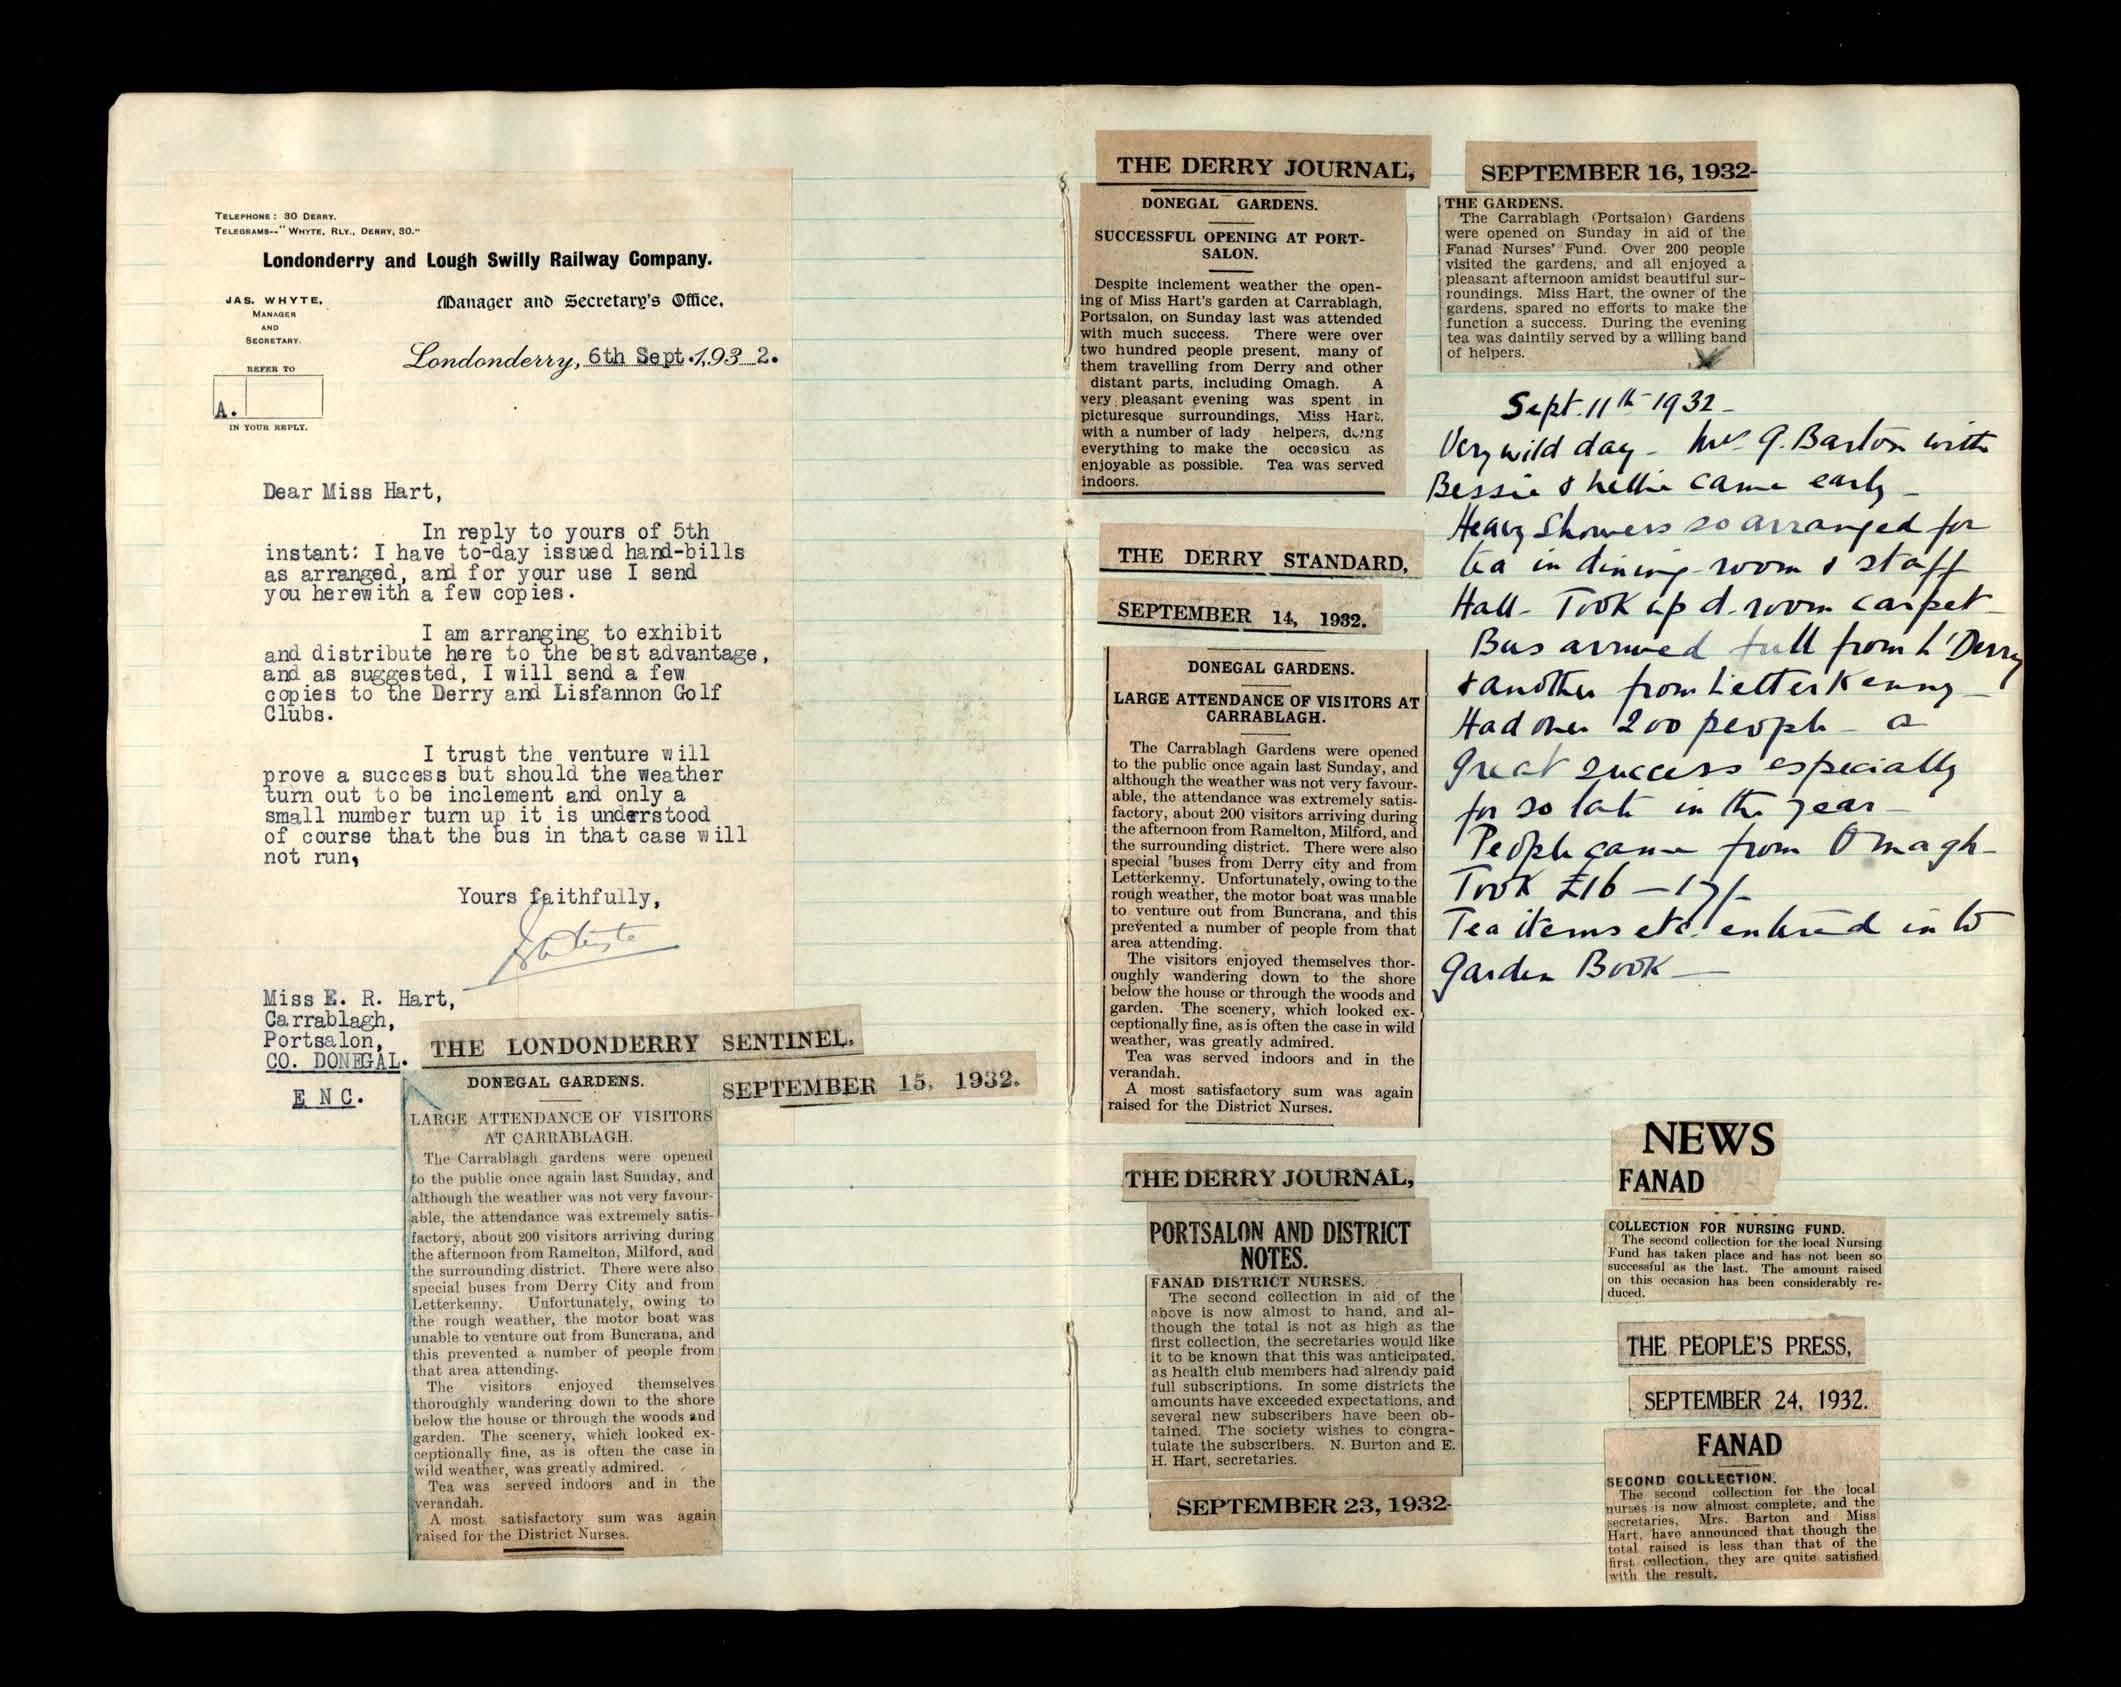 TELEPHONE: 30 DERRY.
TELEGRAMS--"WHYTE, RLY., DERRY, 30."
Londonderry and Lough Swilly Railway Company.
JAS. WHYTE,
MANAGER
AND
SECRETARY.
Manager and Secretary's Office,
Londonderry, 6th Sept. 1,93 2.
REFER TO
A.
IN YOUR REPLY.
Dear Miss Hart,
In reply to yours of 5th
instant: I have to-day issued hand-bills
as arranged, and for your use I send
you herewith a few copies.
I am arranging to exhibit
and distribute here to the best advantage,
and as suggested, I will send a few
copies to the Derry and Lisfannon Golf
Clubs.
I trust the venture will
prove a success but should the weather
turn out to be inclement and only a
small number turn up it is understood
of course that the bus in that case will
not run,
Yours faithfully,
Miss E. R. Hart,
Carrablagh,
Portsalon,
CO. DONEGAL.
E N C.
THE LONDONDERRY SENTINEL.
SEPTEMBER 15, 1932.
DONEGAL GARDENS.
LARGE ATTENDANCE OF VISITORS
AT CARRABLAGH.
The Carrablagh gardens were opened
to the public once again last Sunday, and
although the weather was not very favour-
able, the attendance was extremely satis-
factory, about 200 visitors arriving during
the afternoon from Ramelton, Milford, and
the surrounding district. There were also
special buses from Derry City and from
Letterkenny. Unfortunately, owing to
the rough weather, the motor boat was
unable to venture out from Buncrana, and
this prevented a number of people from
that area attending.
The visitors enjoyed themselves
thoroughly wandering down to the shore
below the house or through the woods and
garden. The scenery, which looked ex-
ceptionally fine, as is often the case in
wild weather, was greatly admired.
Tea was served indoors and in the
verandah.
A most satisfactory sum was again
raised for the District Nurses.
THE DERRY JOURNAL,
DONEGAL GARDENS.
SUCCESSFUL OPENING AT PORT-
SALON.
Despite inclement weather the open-
ing of Miss Hart's garden at Carrablagh,
Portsalon, on Sunday last was attended
with much success. There were over
two hundred people present, many of
them travelling from Derry and other
distant parts, including Omagh. A
very pleasant evening was spent in
picturesque surroundings, Miss Hart,
with a number of lady helpers, doing
everything to make the occasion as
enjoyable as possible. Tea was served
indoors.
THE DERRY STANDARD,
SEPTEMBER 14, 1932.
DONEGAL GARDENS.
LARGE ATTENDANCE OF VISITORS AT
CARRABLAGH.
The Carrablagh Gardens were opened
to the public once again last Sunday, and
although the weather was not very favour-
able, the attendance was extremely satis-
factory, about 200 visitors arriving during
the afternoon from Ramelton, Milford, and
the surrounding district. There were also
special 'buses from Derry city and from
Letterkenny. Unfortunately, owing to the
rough weather, the motor boat was unable
to venture out from Buncrana, and this
prevented a number of people from that
area attending.
The visitors enjoyed themselves thor-
oughly wandering down to the shore
below the house or through the woods and
garden. The scenery, which looked ex-
ceptionally fine, as is often the case in wild
weather, was greatly admired.
Tea was served indoors and in the
verandah.
A most satisfactory sum was again
raised for the District Nurses.
THE DERRY JOURNAL,
PORTSALON AND DISTRICT
NOTES.
FANAD DISTRICT NURSES.
The second collection in aid of the
above is now almost to hand, and al-
though the total is not as high as the
first collection, the secretaries would like
it to be known that this was anticipated,
as health club members had already paid
full subscriptions. In some districts the
amounts have exceeded expectations, and
several new subscribers have been ob-
tained. The society wishes to congra-
tulate the subscribers. N. Burton and E.
H. Hart, secretaries.
SEPTEMBER 23, 1932-
SEPTEMBER 16, 1932-
THE GARDENS.
The Carrablagh (Portsalon) Gardens
were opened on Sunday in aid of the
Fanad Nurses' Fund. Over 200 people
visited the gardens, and all enjoyed a
pleasant afternoon amidst beautiful sur-
roundings. Miss Hart, the owner of the
gardens, spared no efforts to make the
function a success. During the evening
tea was daintily served by a willing band
of helpers.
Sept. 11th 1932-
Very wild day - Mrs G. Barton with
Bessie & Nellie came early -
Heavy showers so arranged for
tea in dining-room & staff
Hall - Took up d-room carpet -
Bus arrived full from L'Derry
& another from Letterkenny -
Had over 200 people - a
great success especially
for so late in the year -
People came from Omagh -
Took £16 - 17/-
Tea items etc. entered in to
Garden Book -
NEWS
FANAD
COLLECTION FOR NURSING FUND.
The second collection for the local Nursing
Fund has taken place and has not been so
successful as the last. The amount raised
on this occasion has been considerably re-
duced.
THE PEOPLE'S PRESS,
SEPTEMBER 24, 1932.
FANAD
SECOND COLLECTION.
The second collection for the local
nurses is now almost complete, and the
secretaries, Mrs. Barton and Miss
Hart, have announced that though the
total raised is less than that of the
first collection, they are quite satisfied
with the result.